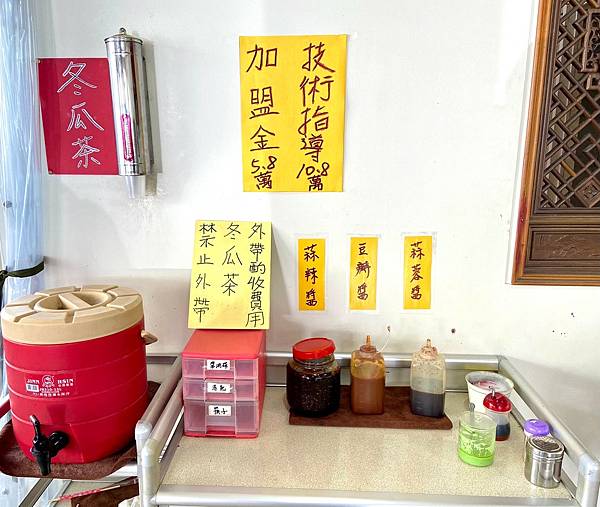 冬瓜茶
技術指導10.8萬
加盟金5.8萬
外帶酌收費用
冬瓜茶
禁止外帶
蒜辣醬
豆瓣醬
蒜蓉醬
JINN HSIN
湯匙
筷子